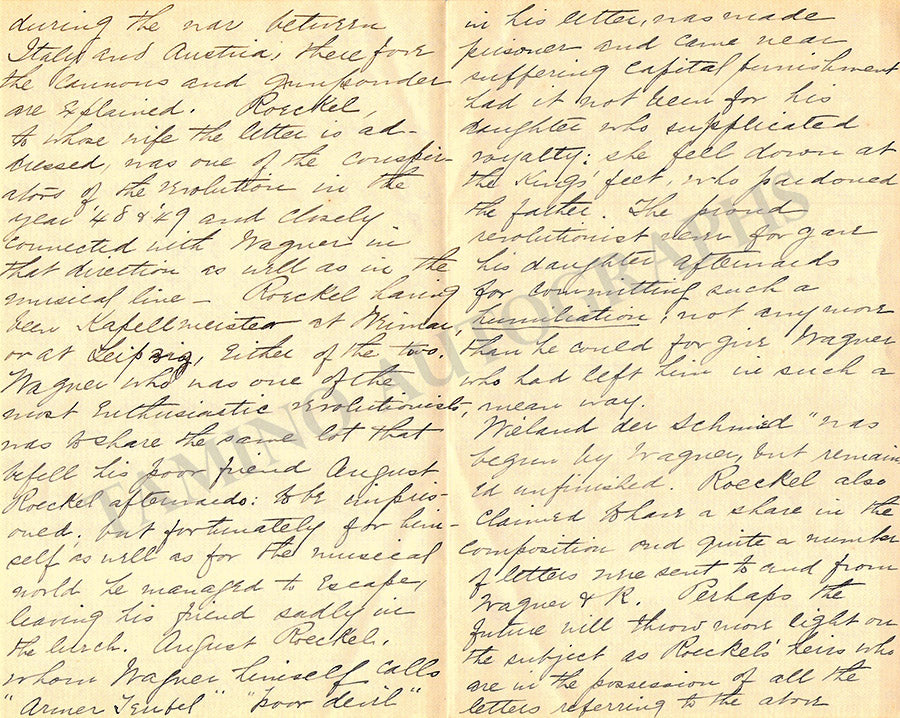 during the war between
Italy and Austria, therefore
the Cannons and Gunpowder
are Explained. Roeckel,
to whose wife the letter is ad-
dressed, was one of the conspir-
ators of the revolution in the
year '48 & '49 and closely
connected with Wagner in
that direction as well as in the
musical line – Roeckel having
been Kapellmeister at Weimar
or at Leipzig, either of the two.
Wagner who was one of the
most Enthusiastic revolutionists,
was to share the same lot that
befell his poor friend August
Roeckel afterwards: to be impris-
oned. but fortunately for him-
self as well as for the musical
world he managed to Escape,
leaving his friend sadly in
the lurch. August Roeckel,
whom Wagner himself calls
"Armer Teufel" "poor devil"
in his letter, was made
prisoner and came near
suffering Capital punishment
had it not been for his
daughter who supplicated
royalty; she fell down at
the King's feet, who pardoned
the father. The proud
revolutionist never forgave
his daughter afterwards
for committing such a
humiliation; not any more
than he could forgive Wagner
who had left him in such a
mean way.
Wieland der Schmied" was
begun by Wagner, but remain
Ed unfinished. Roeckel also
Claimed to have a share in the
composition and quite a number
of letters were sent to and from
Wagner & R. Perhaps the
future will throw more light on
the subject as Roeckels' heirs who
are in the possession of all the
letters referring to the above
TAMINO AUTOGRAPHS